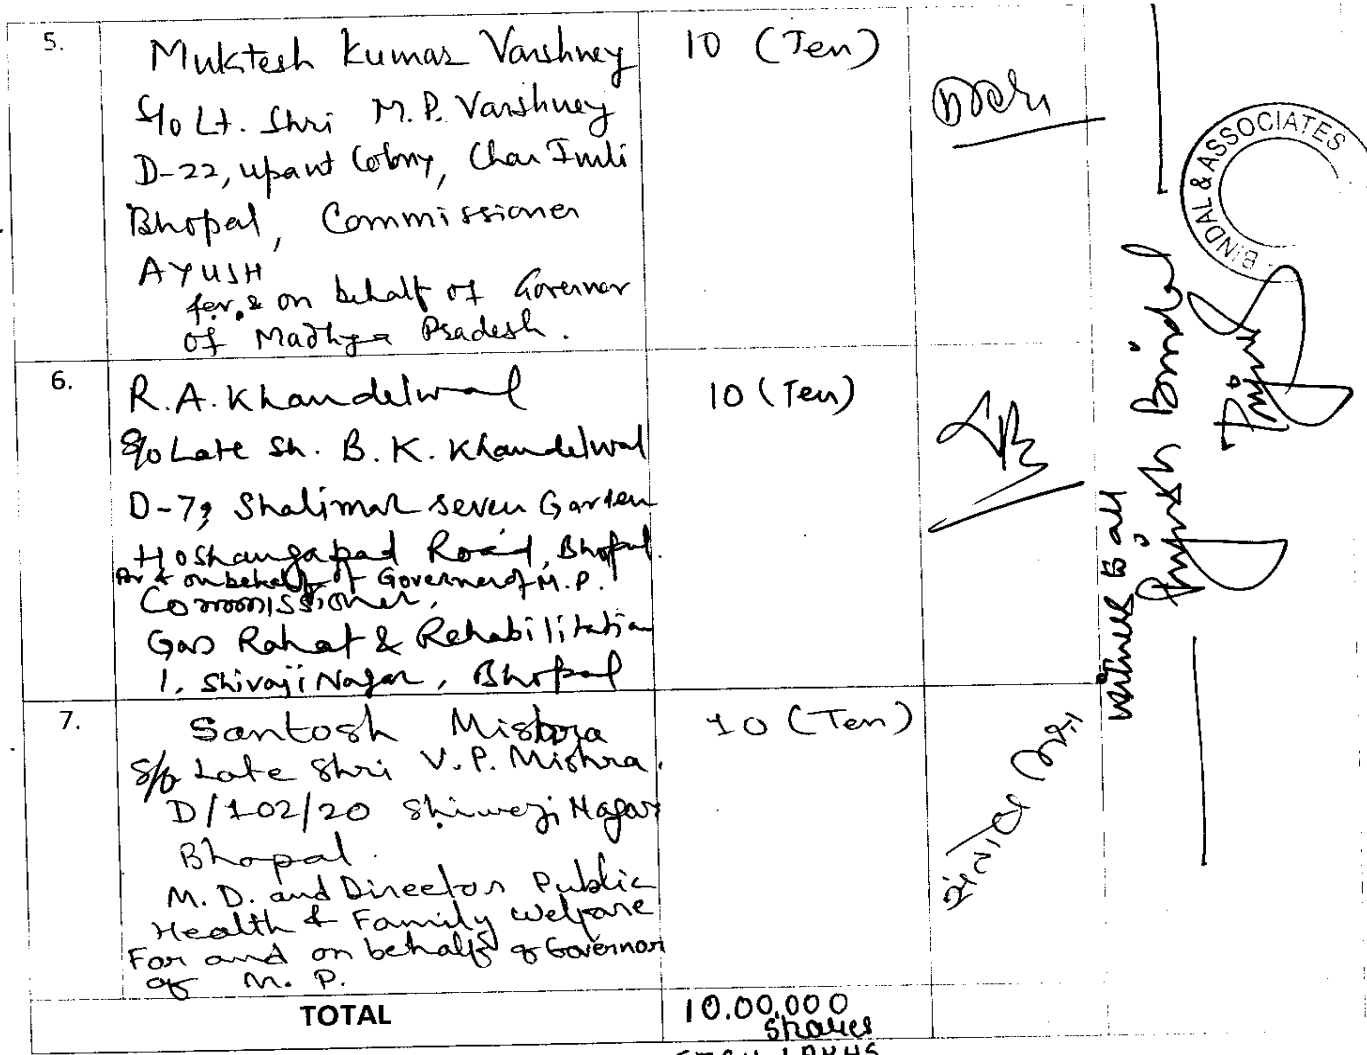 5.
Muktesh Kumar Varshney
S/o Lt. Shri M.P. Varshney
D-22, upant Colony, Char Imli
Bhopal, Commissioner
AYUSH
for & on behalf of Governor
of Madhya Pradesh.
10 (Ten)
6.
R.A. Khandelwal
S/o Late Sh. B. K. Khandelwal
D-7, Shalimar seven Garden
Hoshangabad Road, Bhopal.
For & on behalf of Governer of M.P.
Commissioner,
Gas Rahat & Rehabilitation
1, Shivaji Nagar, Bhopal
10 (Ten)
7.
Santosh Mishra
S/o Late Shri V.P. Mishra.
D/102/20 Shiwaji Nagar
Bhopal.
M.D. and Director Public
Health & Family Welfare
For and on behalf of Governor
of M. P.
10 (Ten)
TOTAL
10,00,000
Shares
(TEN LAKHS
witness to all
Piyush Bindal
BINDAL & ASSOCIATES